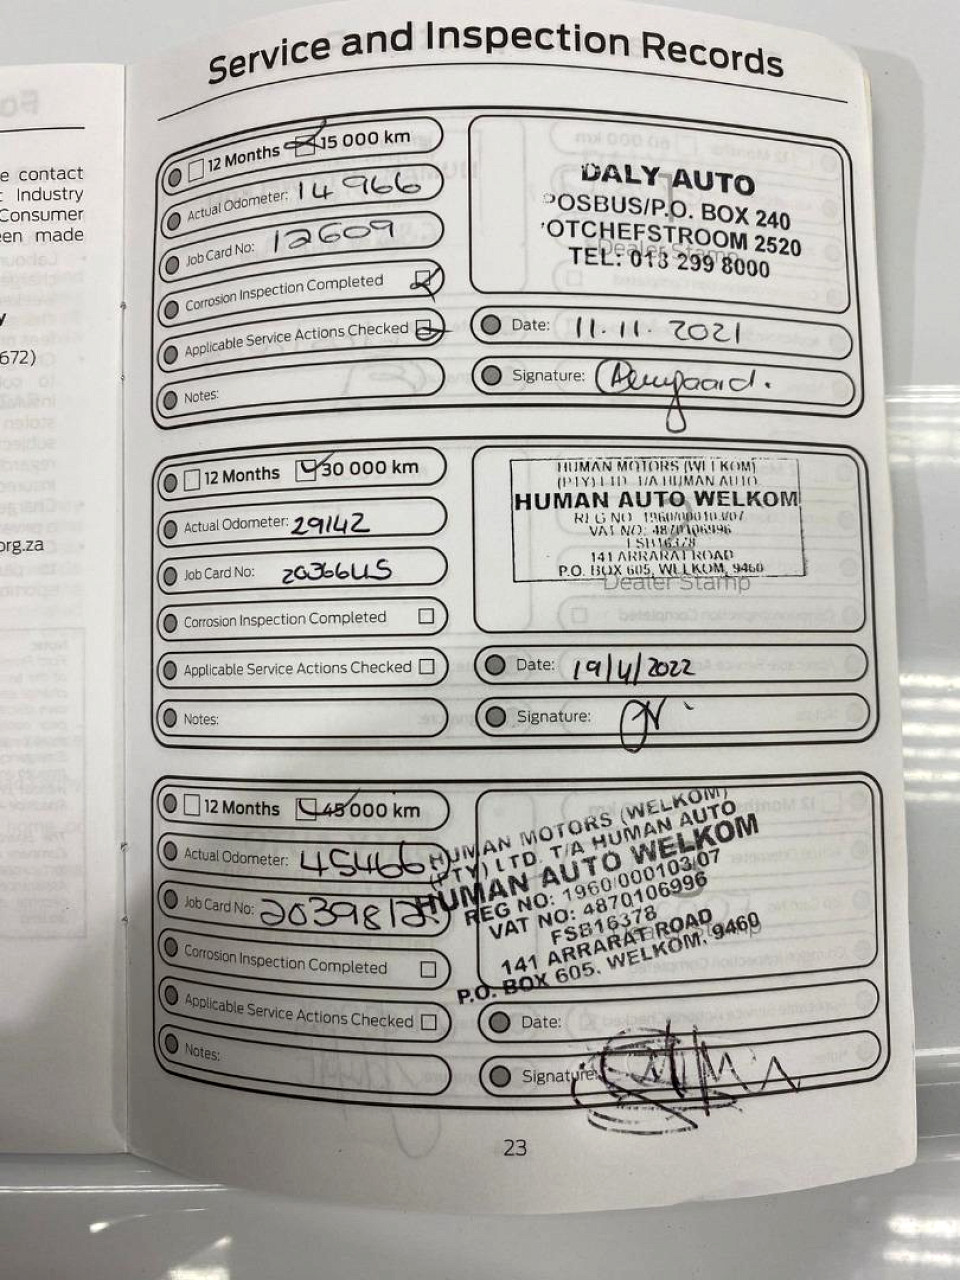 Service and Inspection Records
e contact
Industry
Consumer
een made
y
672)
org.za
12 Months 15 000 km
Actual Odometer: 14 966
Job Card No: 12609
Corrosion Inspection Completed
Applicable Service Actions Checked
Notes:
DALY AUTO
POSBUS/P.O. BOX 240
OTCHEFSTROOM 2520
TEL: 018 299 8000
Dealer Stamp
Date: 11.11.2021
Signature:
12 Months 30 000 km
Actual Odometer: 29142
Job Card No:
Corrosion Inspection Completed
Applicable Service Actions Checked
Notes:
HUMAN MOTORS (WELKOM)
(PTY) LTD. T/A HUMAN AUTO
HUMAN AUTO WELKOM
REG NO: 1960/000103/07
VAT NO: 4870106996
FSB16378
141 ARRARAT ROAD
P.O. BOX 605, WELKOM, 9460
Dealer Stamp
Date: 19/4/2022
Signature:
12 Months 45 000 km
Actual Odometer: 45466
Job Card No:
Corrosion Inspection Completed
Applicable Service Actions Checked
Notes:
HUMAN MOTORS (WELKOM)
(PTY) LTD. T/A HUMAN AUTO
HUMAN AUTO WELKOM
REG NO: 1960/000103/07
VAT NO: 4870106996
FSB16378
141 ARRARAT ROAD
P.O. BOX 605. WELKOM. 9460
Date:
Signature:
23